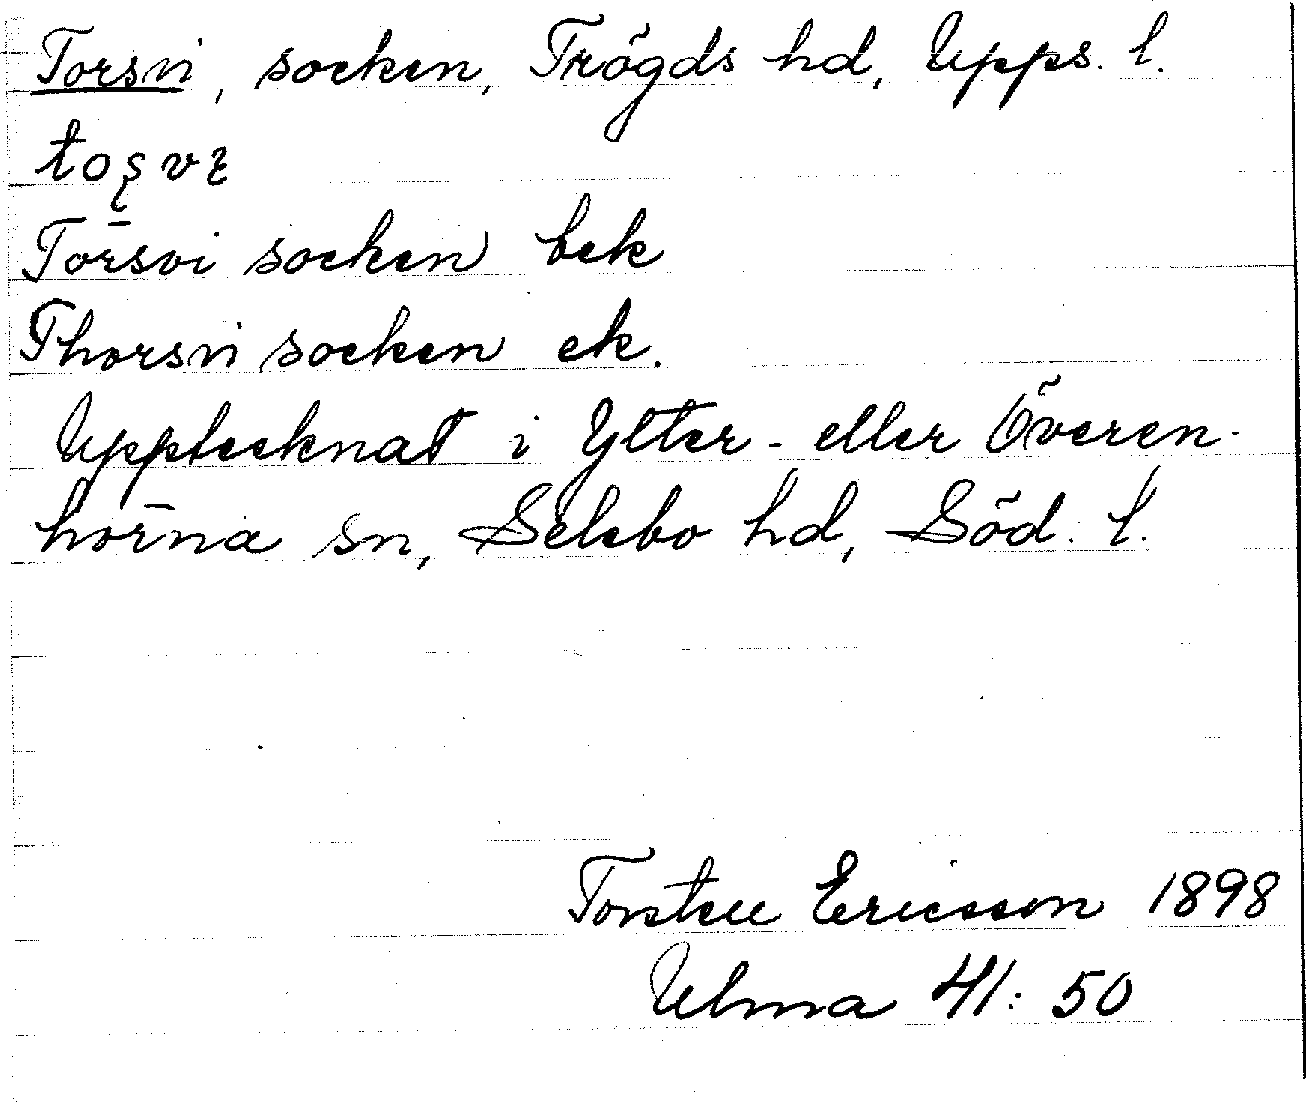 Torsvi, socken, Trögds hd, Upps. l.
Torsvi socken bek
Thorsvi socken ek.
Upptecknat i Ytter- eller Överen-
hörna sn, Selebo hd, Söd. l.
Torsten Ericsson 1898
Ulma 41:50